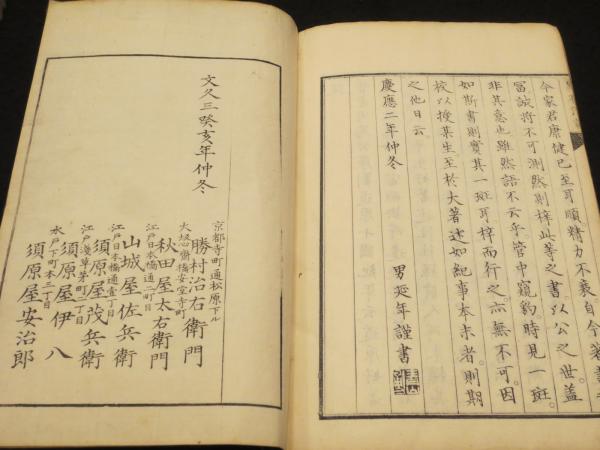 今家君康健已至耳順精力不衰自今著書
富誠將不可測然則梓此等之書以公之世蓋
非其意也雖然語不云乎管中窺豹時見一斑
如斯書則實其一斑耳梓而行之亦無不可因
校以授某生至於大著述如紀事本末者則期
之他日云
慶應二年仲冬
男延年謹書
文久三癸亥年仲冬
京都寺町通松原下ル
勝村治右衛門
大坂心齋橋安堂寺町
秋田屋太右衛門
江戸日本橋通二町目
山城屋佐兵衛
江戸日本橋通壹丁目
須原屋茂兵衛
江戸淺草茅町二丁目
須原屋伊八
水戸下町本三丁目
須原屋安治郎